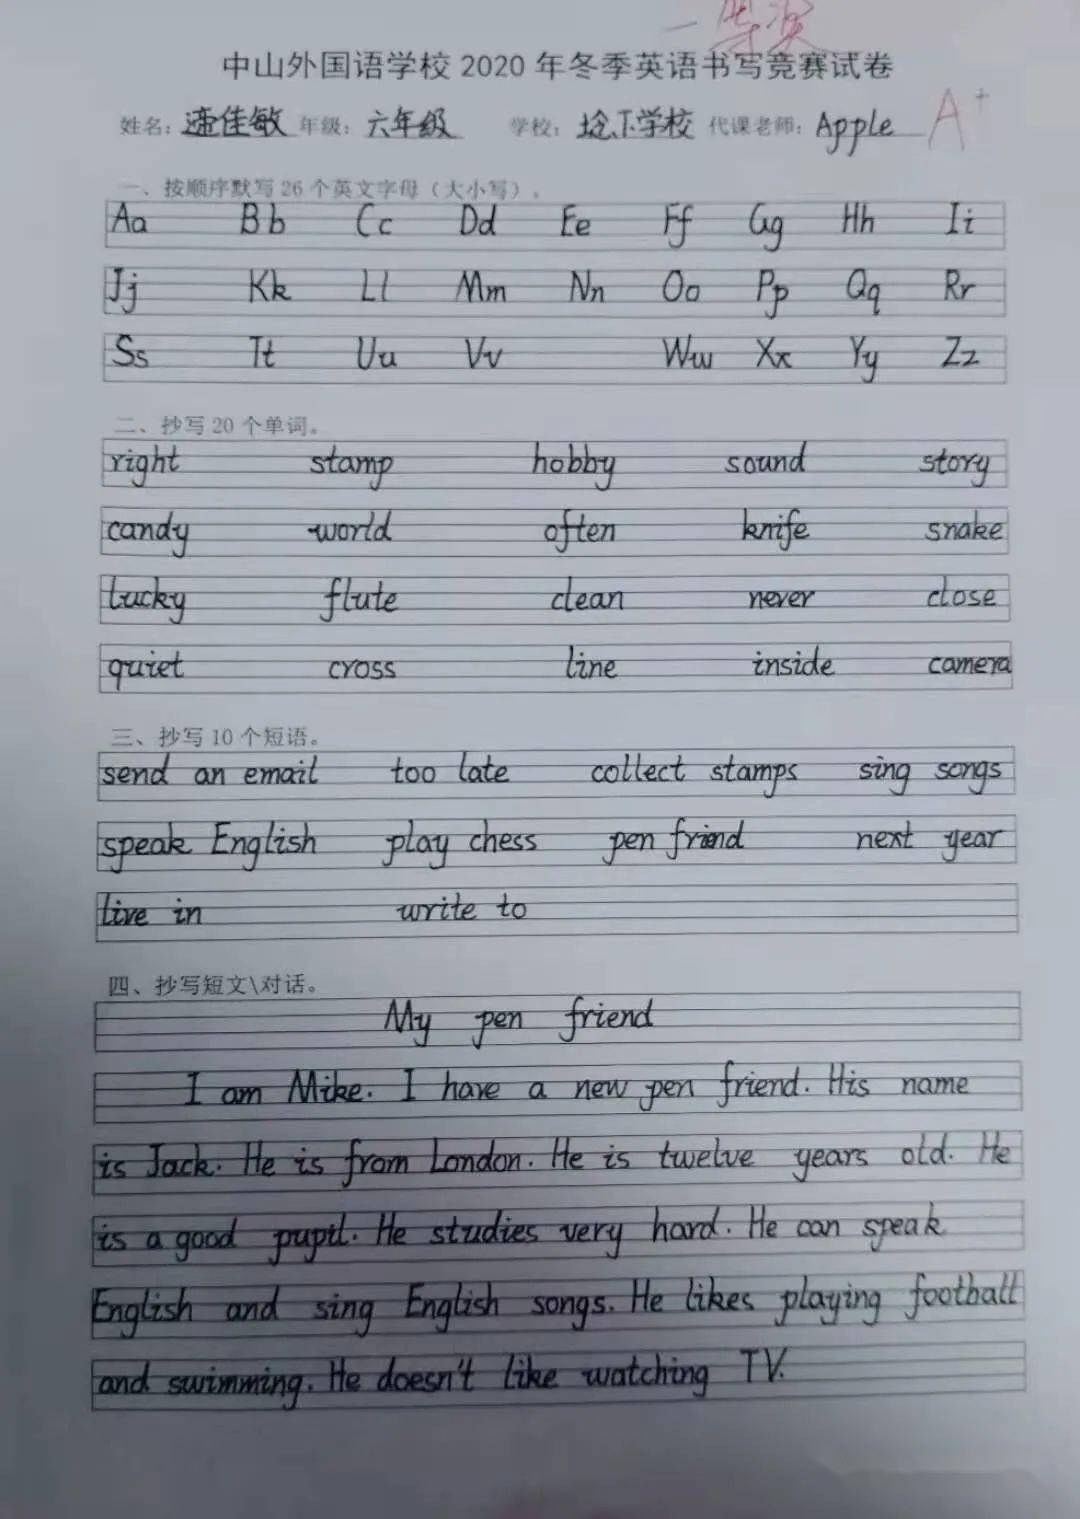 一等奖
中山外国语学校 2020 年冬季英语书写竞赛试卷
姓名：佳敏 年级：六年级 学校：埝下学校 代课老师：Apple A+
一、按顺序默写 26 个英文字母（大小写）。
Aa Bb Cc Dd Ee Ff Gg Hh Ii
Jj Kk Ll Mm Nn Oo Pp Qq Rr
Ss Tt Uu Vv Ww Xx Yy Zz
二、抄写 20 个单词。
right stamp hobby sound story
candy world often knife snake
lucky flute clean never close
quiet cross line inside camera
三、抄写 10 个短语。
send an email too late collect stamps sing songs
speak English play chess pen friend next year
live in write to
四、抄写短文\对话。
My pen friend
I am Mike. I have a new pen friend. His name
is Jack. He is from London. He is twelve years old. He
is a good pupil. He studies very hard. He can speak
English and sing English songs. He likes playing football
and swimming. He doesn't like watching TV.